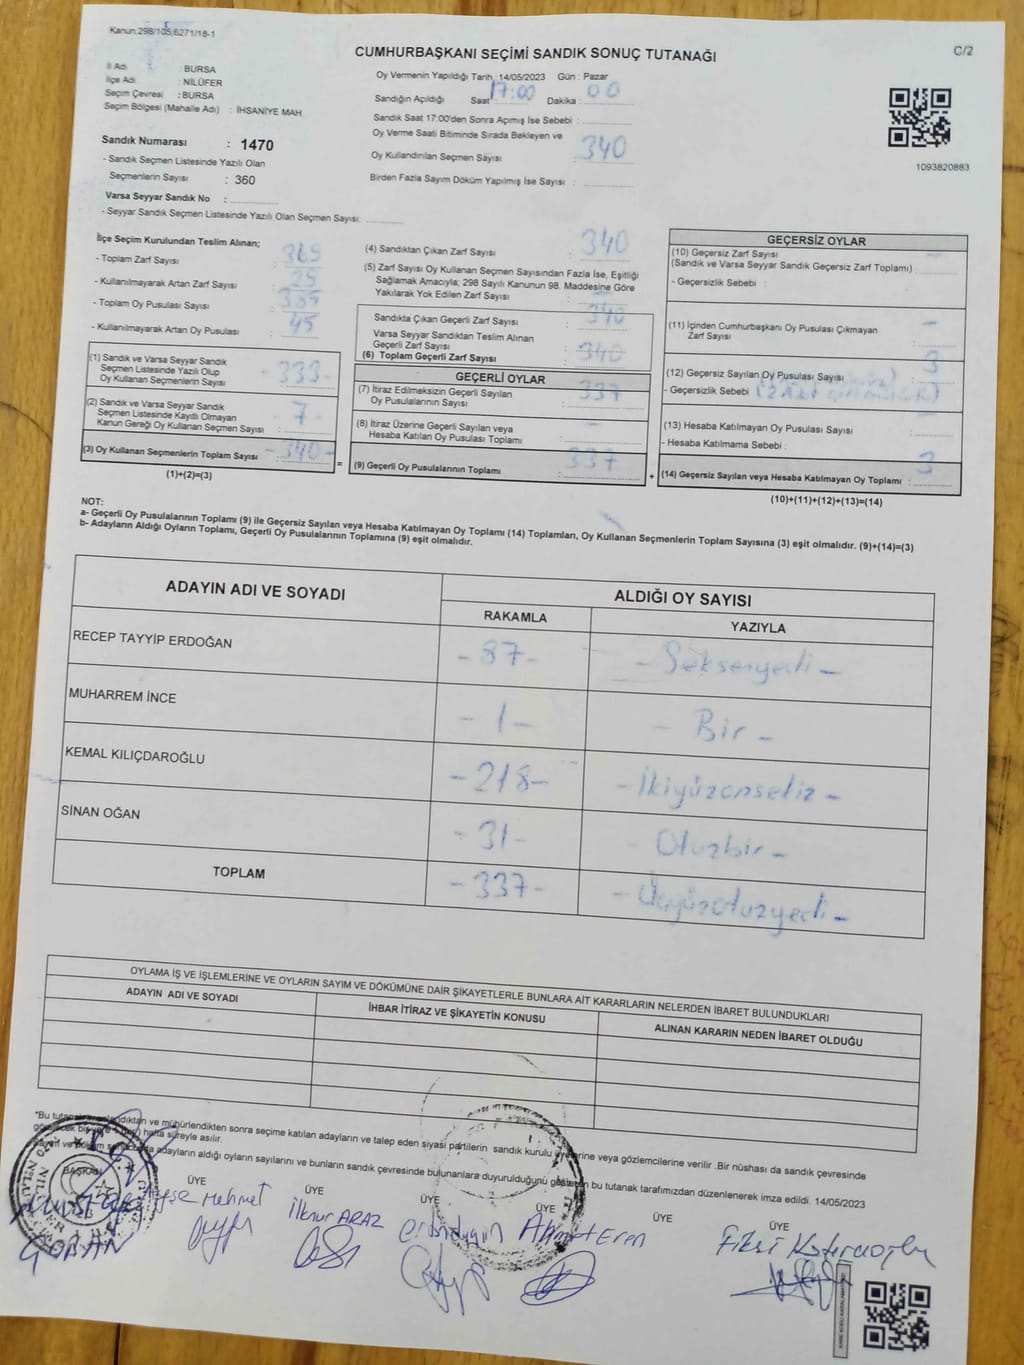 Kanun:298/105,6271/18-1
C/2
CUMHURBAŞKANI SEÇİMİ SANDIK SONUÇ TUTANAĞI
İl Adı : BURSA
İlçe Adı : NİLÜFER
Seçim Çevresi : BURSA
Seçim Bölgesi (Mahalle Adı) : İHSANİYE MAH.
Sandık Numarası : 1470
- Sandık Seçmen Listesinde Yazılı Olan
Seçmenlerin Sayısı : 360
Varsa Seyyar Sandık No :
- Seyyar Sandık Seçmen Listesinde Yazılı Olan Seçmen Sayısı:
Oy Vermenin Yapıldığı Tarih 14/05/2023 Gün : Pazar
Sandığın Açıldığı Saat 17:00 Dakika : 00
Sandık Saat 17:00'den Sonra Açımış İse Sebebi :
Oy Verme Saati Bitiminde Sırada Bekleyen ve
Oy Kullandırılan Seçmen Sayısı : 340
Birden Fazla Sayım Döküm Yapılmış İse Sayısı :
1093820883
İlçe Seçim Kurulundan Teslim Alınan;
- Toplam Zarf Sayısı : 365
- Kullanılmayarak Artan Zarf Sayısı : 25
- Toplam Oy Pusulası Sayısı : 385
- Kullanılmayarak Artan Oy Pusulası : 45
(1) Sandık ve Varsa Seyyar Sandık
Seçmen Listesinde Yazılı Olup
Oy Kullanan Seçmenlerin Sayısı : - 333 -
(2) Sandık ve Varsa Seyyar Sandık
Seçmen Listesinde Kayıtlı Olmayan
Kanun Gereği Oy Kullanan Seçmen Sayısı : - 7 -
(3) Oy Kullanan Seçmenlerin Toplam Sayısı : - 340 -
(1)+(2)=(3)
=
(4) Sandıktan Çıkan Zarf Sayısı : 340
(5) Zarf Sayısı Oy Kullanan Seçmen Sayısından Fazla İse, Eşitliği
Sağlamak Amacıyla; 298 Sayılı Kanunun 98. Maddesine Göre
Yakılarak Yok Edilen Zarf Sayısı : -
Sandıkta Çıkan Geçerli Zarf Sayısı : 340
Varsa Seyyar Sandıktan Teslim Alınan
Geçerli Zarf Sayısı :
(6) Toplam Geçerli Zarf Sayısı 340
GEÇERLİ OYLAR
(7) İtiraz Edilmeksizin Geçerli Sayılan
Oy Pusulalarının Sayısı : 337
(8) İtiraz Üzerine Geçerli Sayılan veya
Hesaba Katılan Oy Pusulası Toplamı : -
(9) Geçerli Oy Pusulalarının Toplamı : 337
+
GEÇERSİZ OYLAR
(10) Geçersiz Zarf Sayısı
(Sandık ve Varsa Seyyar Sandık Geçersiz Zarf Toplamı) : -
- Geçersizlik Sebebi :
(11) İçinden Cumhurbaşkanı Oy Pusulası Çıkmayan
Zarf Sayısı : -
(12) Geçersiz Sayılan Oy Pusulası Sayısı : 3
- Geçersizlik Sebebi
(13) Hesaba Katılmayan Oy Pusulası Sayısı : -
- Hesaba Katılmama Sebebi :
(14) Geçersiz Sayılan veya Hesaba Katılmayan Oy Toplamı : 3
(10)+(11)+(12)+(13)=(14)
NOT:
a- Geçerli Oy Pusulalarının Toplamı (9) ile Geçersiz Sayılan veya Hesaba Katılmayan Oy Toplamı (14) Toplamları, Oy Kullanan Seçmenlerin Toplam Sayısına (3) eşit olmalıdır. (9)+(14)=(3)
b- Adayların Aldığı Oyların Toplamı, Geçerli Oy Pusulalarının Toplamına (9) eşit olmalıdır.
ADAYIN ADI VE SOYADI ALDIĞI OY SAYISI
RAKAMLA YAZIYLA
RECEP TAYYİP ERDOĞAN - 87 - - Seksenyedi -
MUHARREM İNCE - 1 - - Bir -
KEMAL KILIÇDAROĞLU - 218 - - İkiyüzonsekiz -
SİNAN OĞAN - 31 - - Otuzbir -
TOPLAM - 337 - - Üçyüzotuzyedi -
OYLAMA İŞ VE İŞLEMLERİNE VE OYLARIN SAYIM VE DÖKÜMÜNE DAİR ŞİKAYETLERLE BUNLARA AİT KARARLARIN NELERDEN İBARET BULUNDUKLARI
ADAYIN ADI VE SOYADI İHBAR İTİRAZ VE ŞİKAYETİN KONUSU ALINAN KARARIN NEDEN İBARET OLDUĞU
ve mühürlendikten sonra seçime katılan adayların ve talep eden siyasi partilerin sandık kurulu üyelerine veya gözlemcilerine verilir .Bir nüshası da sandık çevresinde
hafta süreyle asılır.
adayların aldığı oyların sayılarını ve bunların sandık çevresinde bulunanlara duyurulduğunu gösteren bu tutanak tarafımızdan düzenlenerek imza edildi. 14/05/2023
BAŞKAN ÜYE ÜYE ÜYE ÜYE ÜYE ÜYE
ÇOBAN Ayşe Mehmet İlknur ARAZ Ahmet Eren